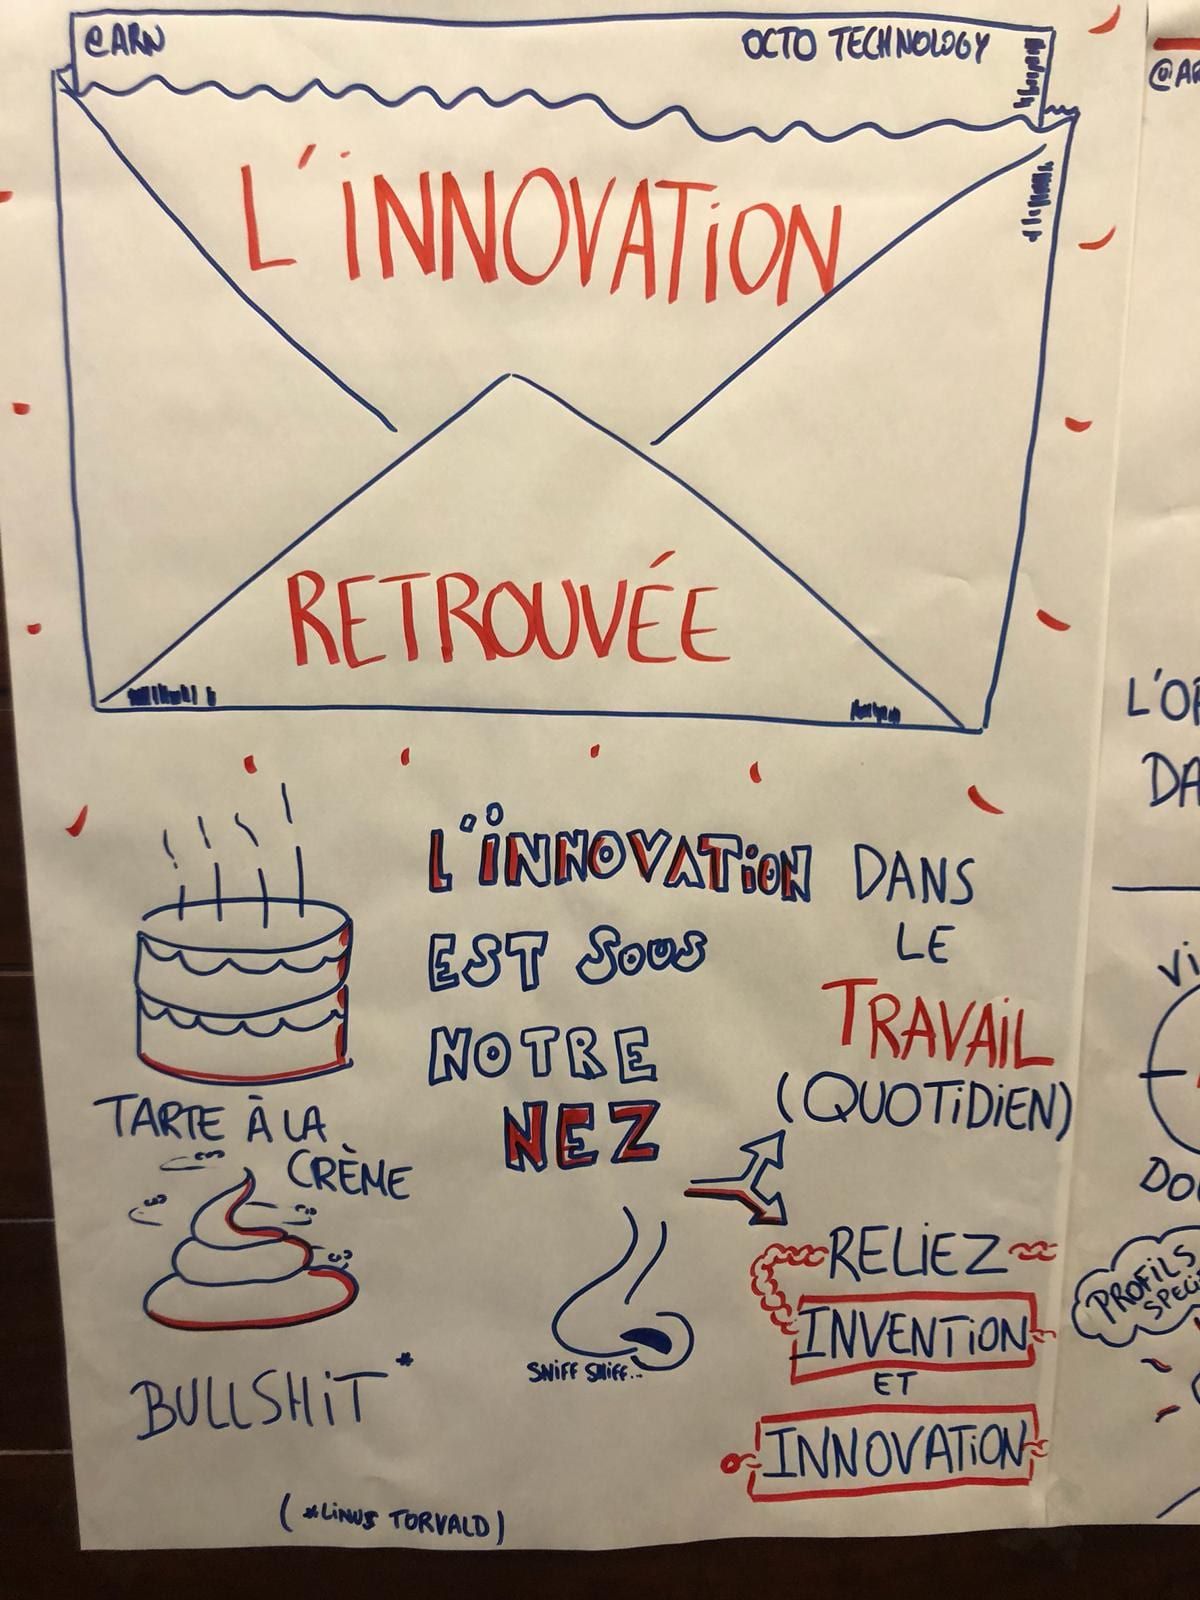 @ARN
OCTO TECHNOLOGY
L'iNNOVATiON
RETROUVÉE
L'iNNOVATiON
EST SOUS
NOTRE
NEZ
DANS
LE
TRAVAiL
(QUOTiDiEN)
TARTE À LA
CRÈME
BULLSHiT*
(*LiNUS TORVALD)
SNiFF SNiFF...
RELiEZ
INVENTiON
ET
INNOVATiON
@AR
L'O
DA
Vi
DO
PROFiLS
SPECi